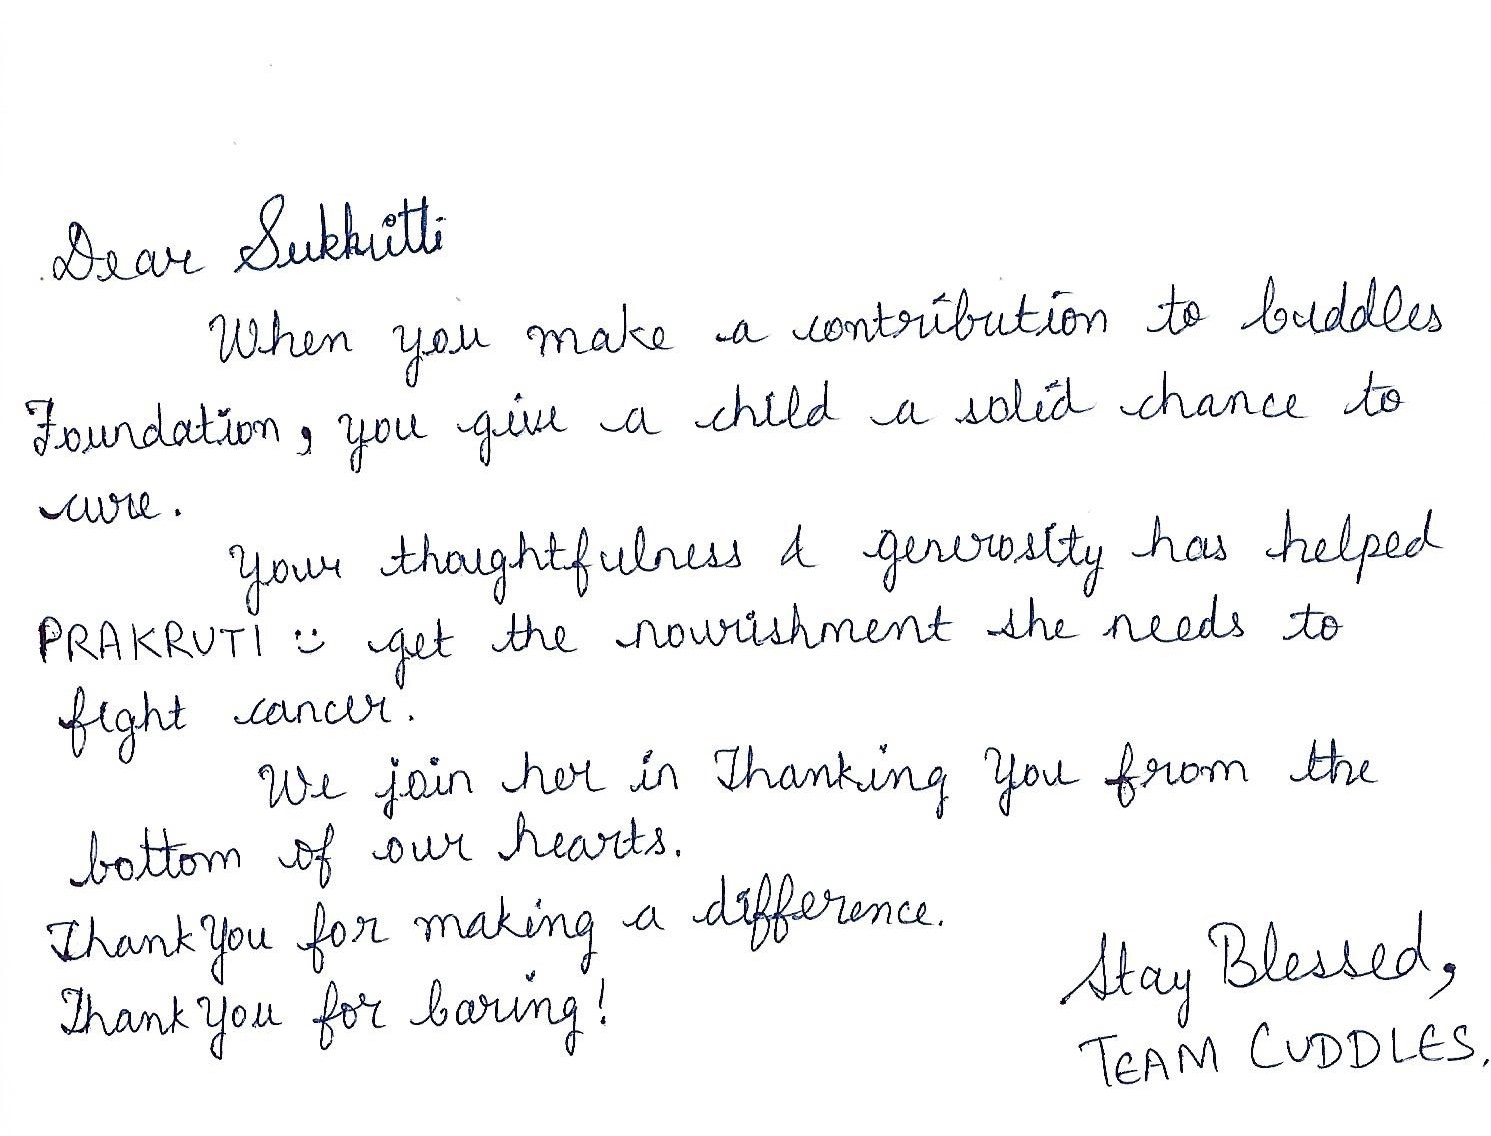 Dear Sukkritti
When you make a contribution to Cuddles
Foundation, you give a child a solid chance to
cure.
Your thoughtfulness & generosity has helped
PRAKRUTI :) get the nourishment she needs to
fight cancer.
We join her in Thanking You from the
bottom of our hearts.
Thank You for making a difference.
Thank You for Caring!
Stay Blessed,
TEAM CUDDLES.